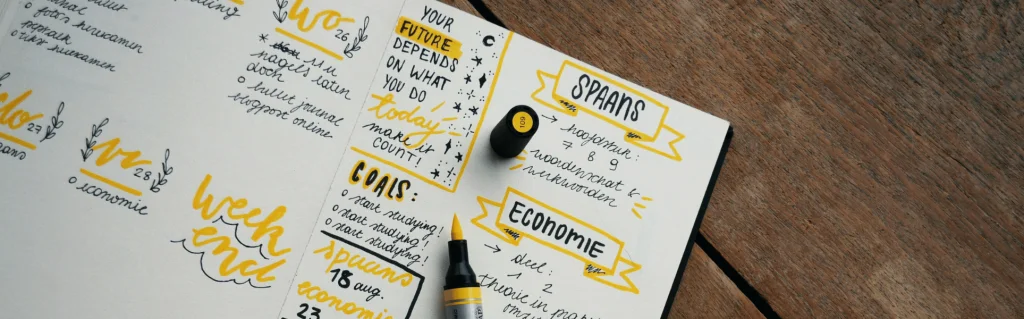 wo 26
* 11 u
nagels laten
doen
○ bullet journal
blogpost online
do 27
vr 28
○ economie
week
end
YOUR
FUTURE
DEPENDS
ON WHAT
YOU DO
today
make it
COUNT!
GOALS:
○ start studying!
○ start studying!
○ start studying!
spaans
18 aug.
economie
23
109
SPAANS
→ hoofdstuk:
7 8 9
woordenschat &
werkwoorden
ECONOMIE
→ deel:
1 2
theorie in